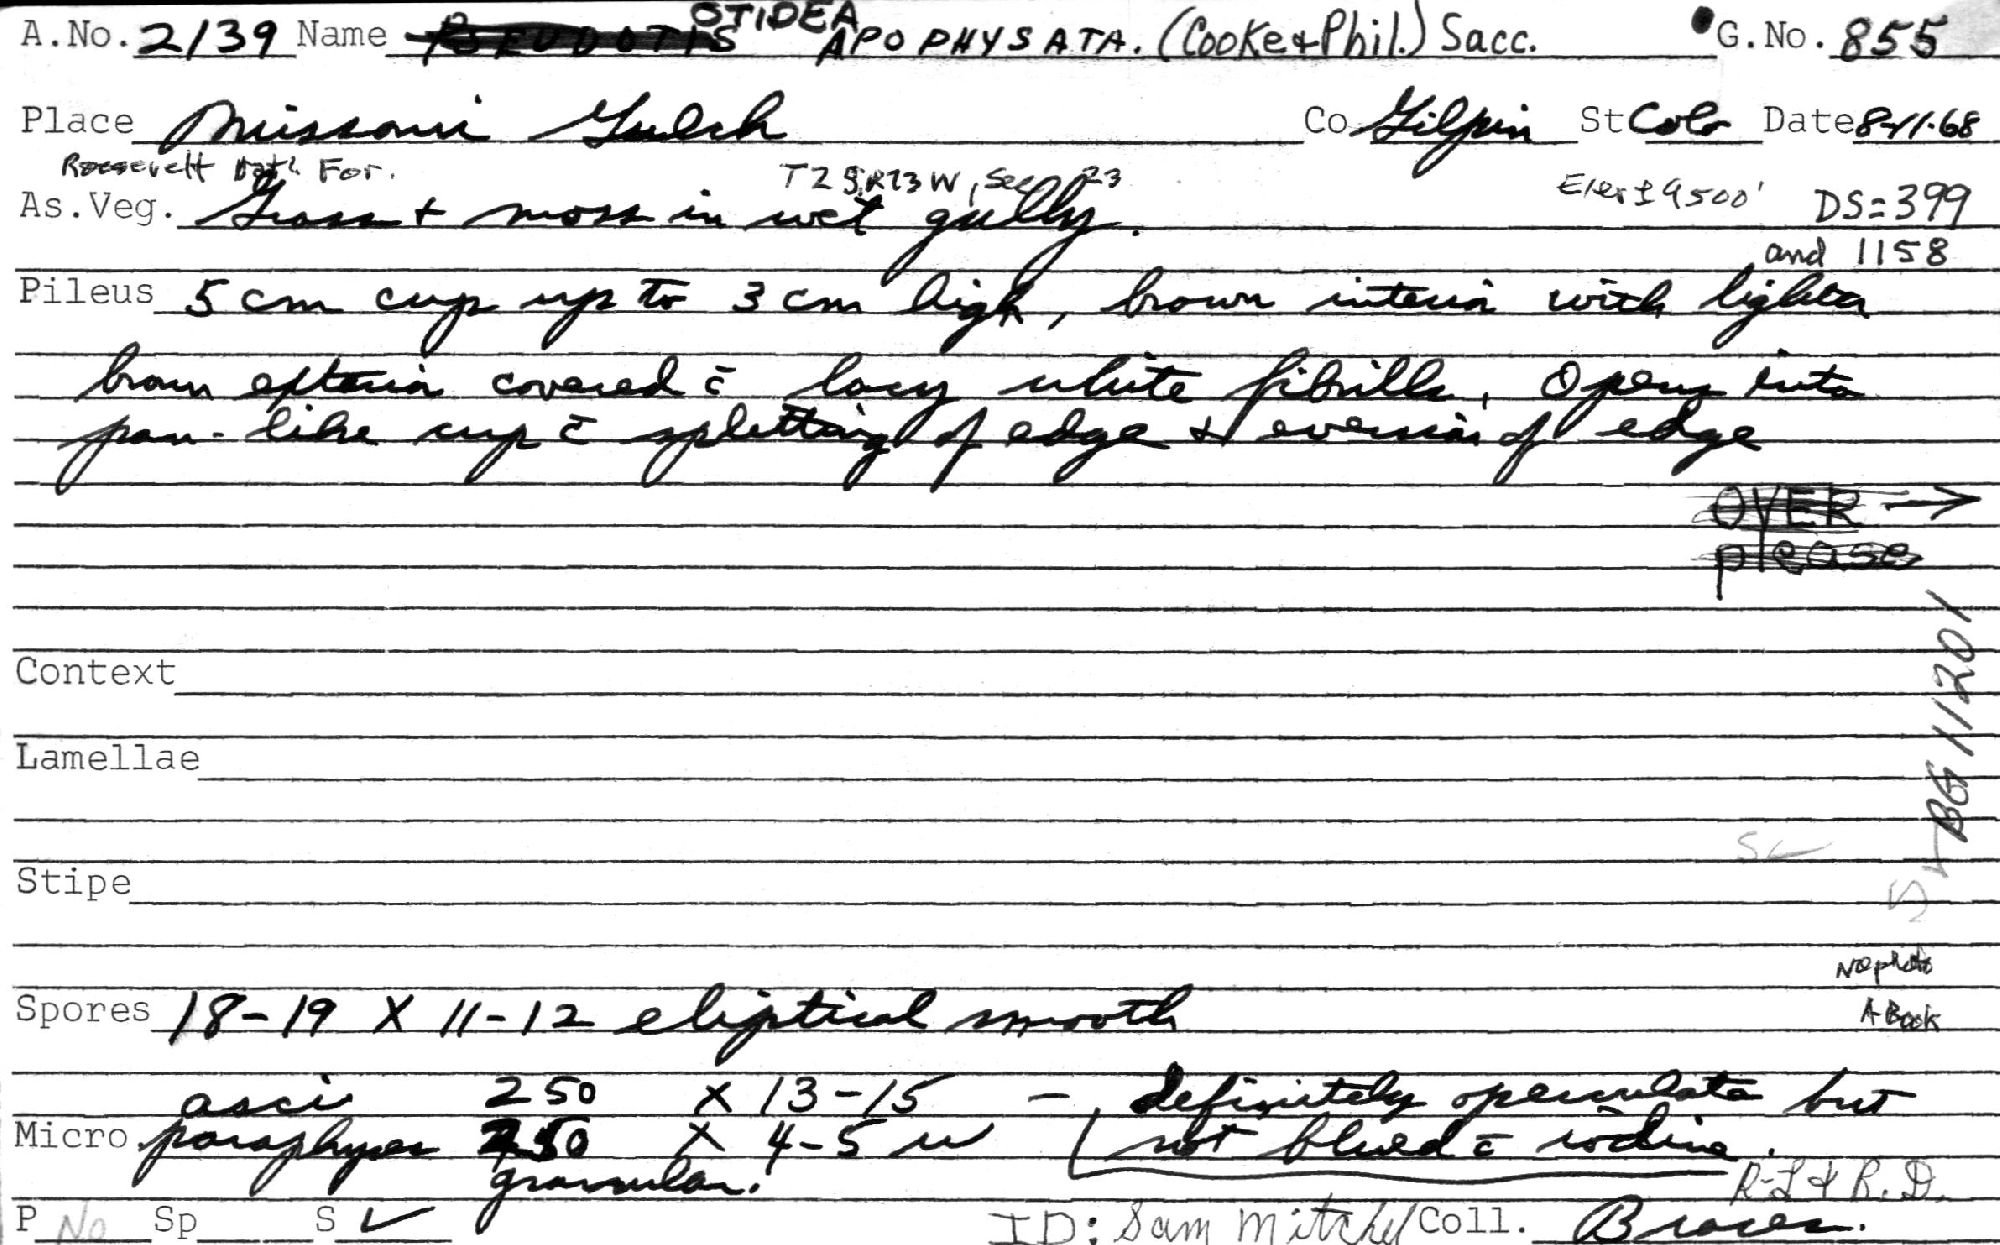 OTIDEA
A.No. 2139 Name PSEUDOTIS APOPHYSATA. (Cooke & Phil.) Sacc. G.No. 855
Place Missouri Gulch Co Gilpin St Colo Date 8-11-68
Roosevelt Nat'l For. T2S, R73W, Sec 23 Elev ± 9500' DS=399
As.Veg. Grass + moss in wet gully.
and 1158
Pileus 5 cm cup up to 3 cm high, brown interior with lighter
brown exterior covered c̄ lacy white fibrills. Opens into
pan-like cup c̄ splitting of edge & eversion of edge
OVER →
please
BG 11201
Context
Lamellae
Stipe
No photo
Spores 18-19 X 11-12 eliptical smooth
A Book
asci 250 X 13-15 — definitely operculate but
Micro paraphyses 250 X 4-5 u not blued c̄ iodine.
granular.
R-L & R.D.
P No Sp S ✓ ID: Sam Mitchel Coll. Braces.